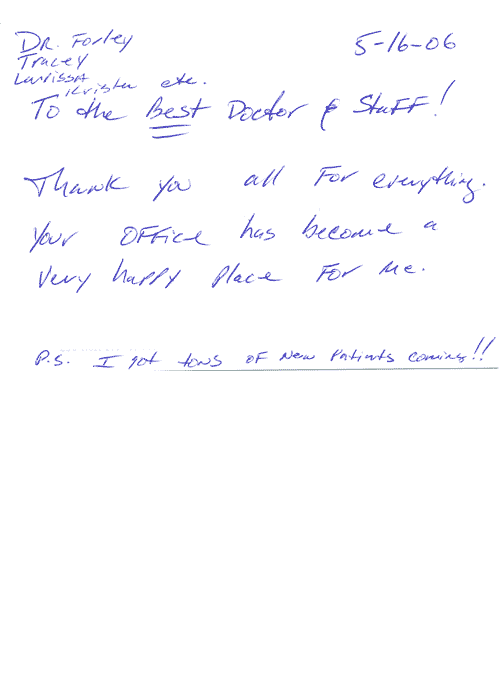 Dr. Forley
5-16-06
Tracey
Larissa
Krista etc.
To the Best Doctor & Staff!
Thank you all For everything.
Your Office has become a
Very happy Place For Me.
P.S. I got tons of New Patients coming!!